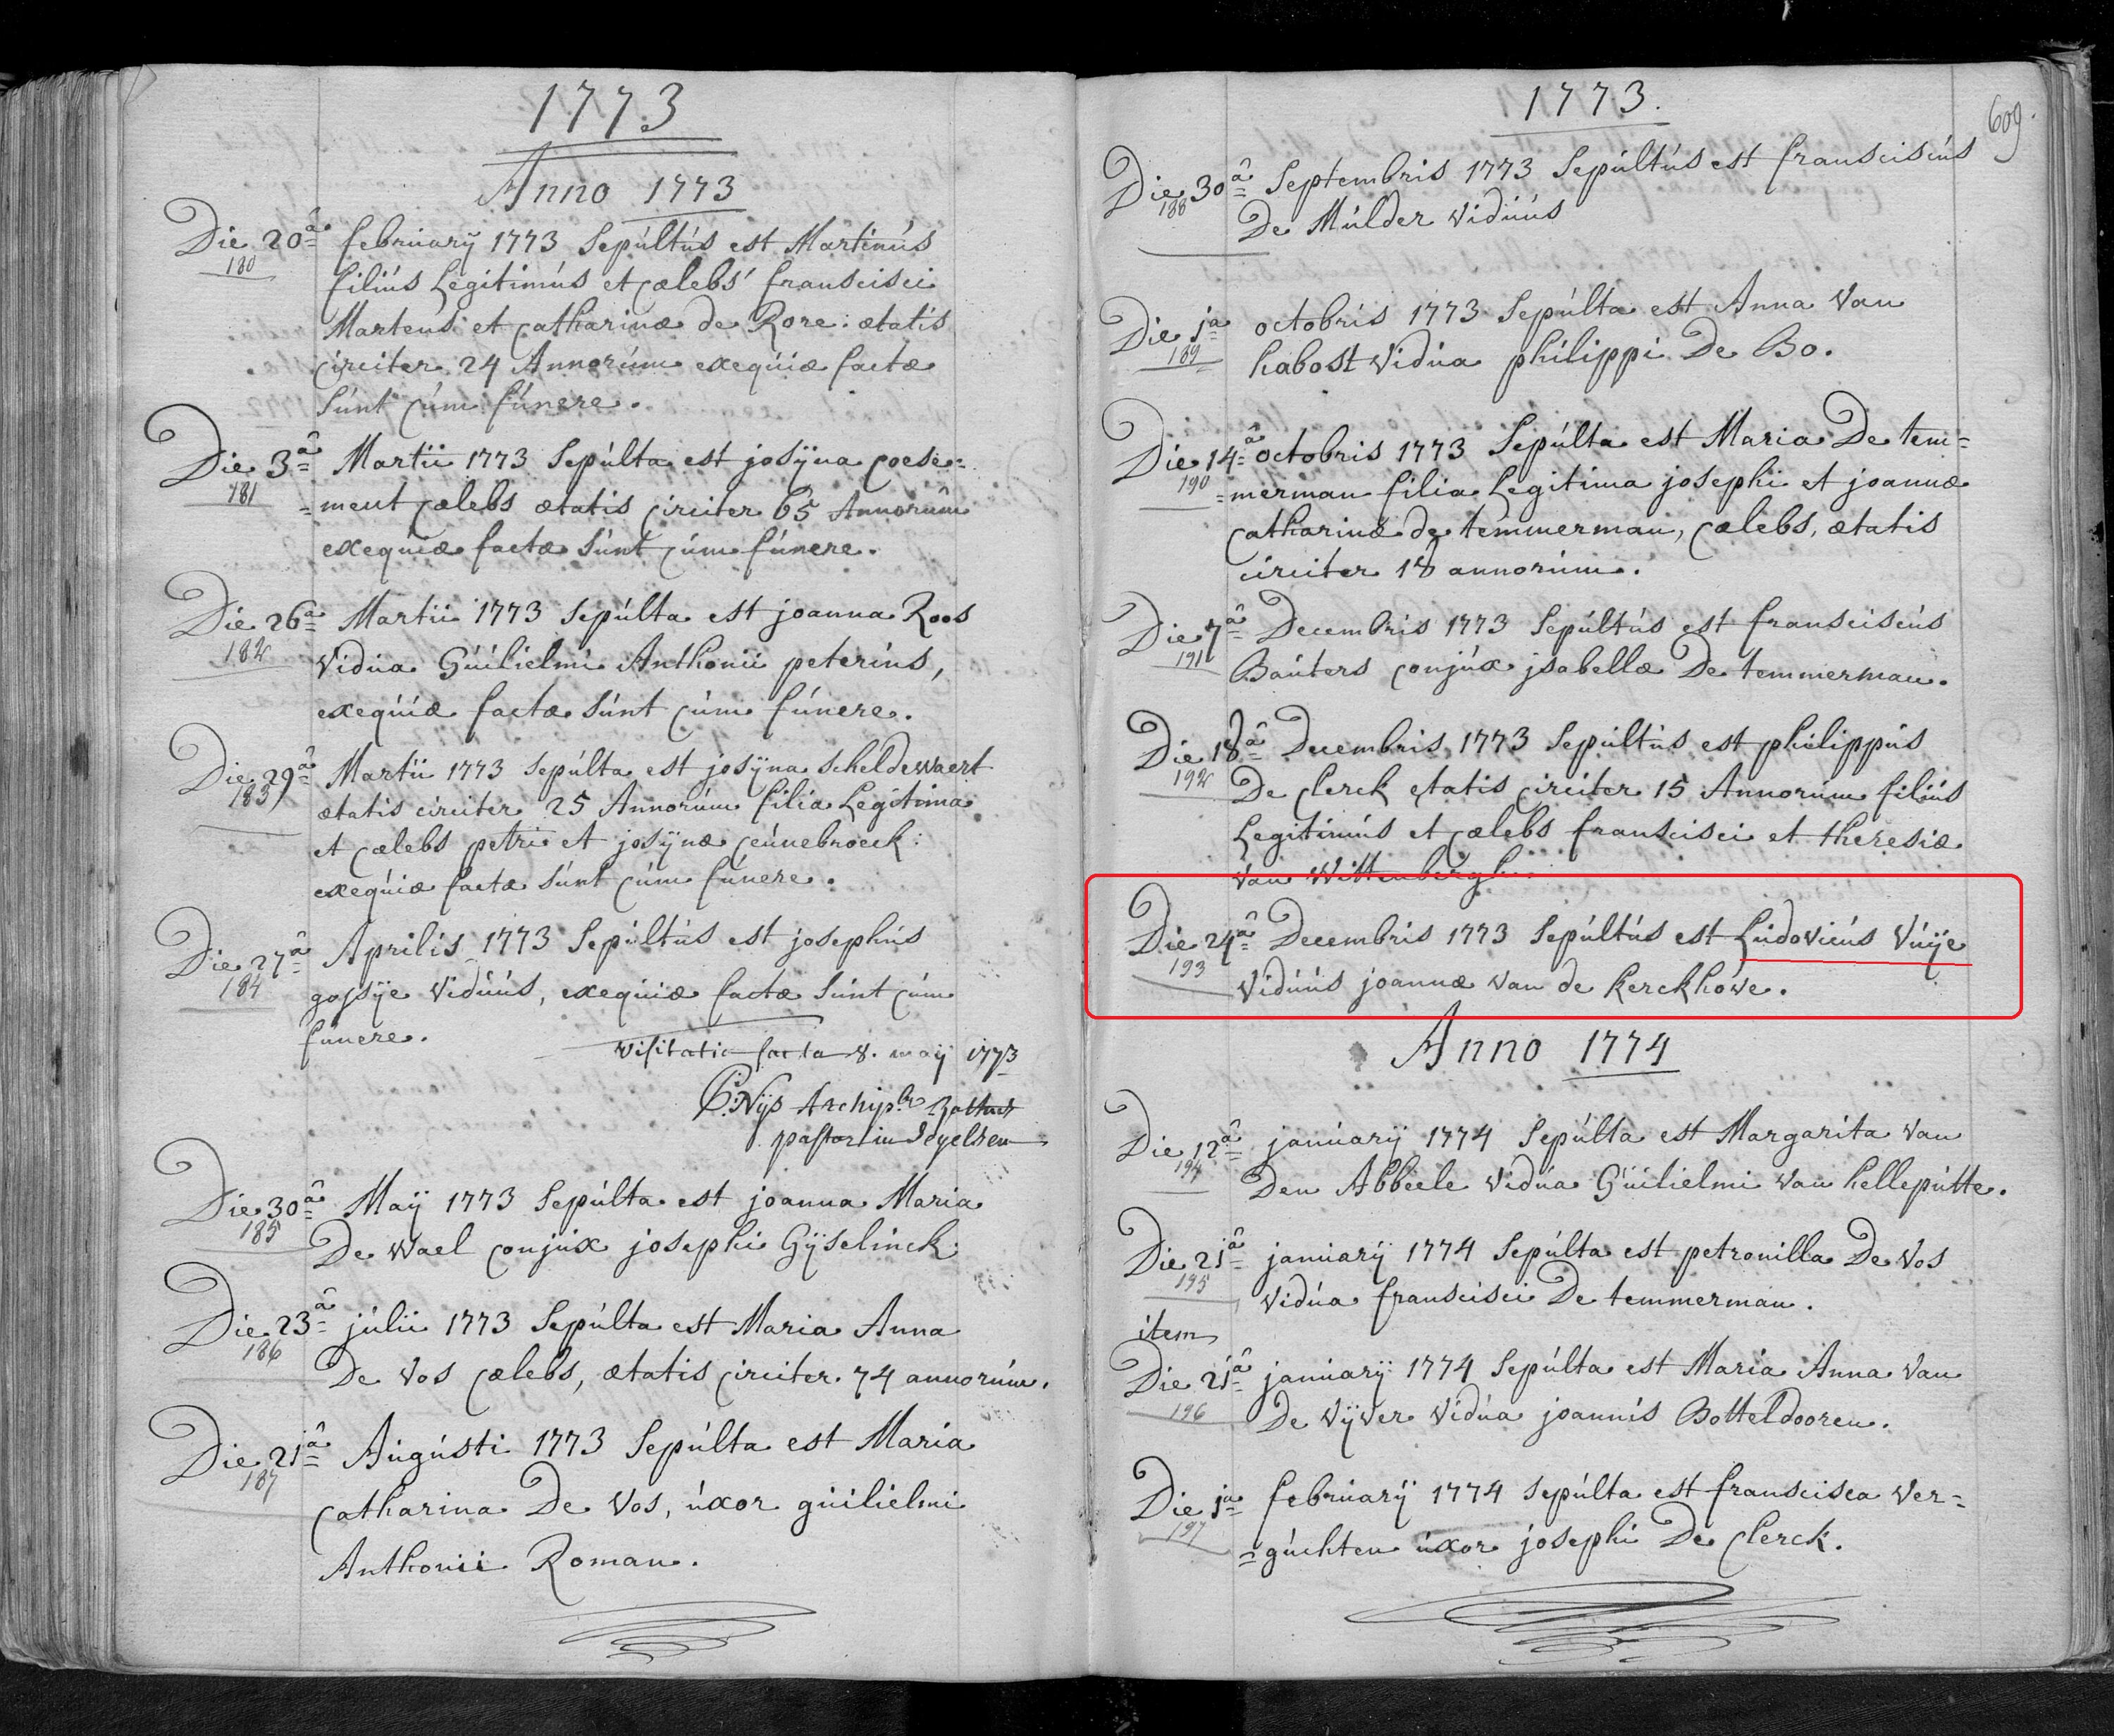 1773
Anno 1773
Die 20â februarÿ 1773 Sepúltús est Martinús
180
filiús Legitimús et cælebs franscisci
Martens et catharinæ de Rore: ætatis
circiter 24 Annorúm exeqúiæ factæ
súnt cúm fúnere.
Die 3â Martii 1773 Sepúlta est josÿna coese=
181
=ment cælebs ætatis circiter 65 Annorúm
exeqúiæ factæ súnt cúm fúnere.
Die 26â Martii 1773 Sepúlta est joanna Roos
182
Vidúa Gúilielmi Anthonii peteríns,
exeqúiæ factæ súnt cúm fúnere.
Die 29â Martii 1773 Sepúlta est josÿna scheldewaert
183
ætatis circiter 25 Annorúm filia Legitima
et cælebs petri et josÿnæ ceúnebroeck:
exeqúiæ factæ súnt cúm fúnere.
Die 27â Aprilis 1773 Sepúltús est josephús
184
gossÿe vidúús, exeqúiæ factæ súnt cúm
fúnere.
visitatio facta 8. maÿ 1773
Nÿs Archip.
pastor in
Die 30â Maÿ 1773 Sepúlta est joanna Maria
185
De Wael conjúx josephi Gÿselinck:
Die 23â júlii 1773 Sepúlta est Maria Anna
186
De Vos cælebs, ætatis circiter 74 annorúm.
Die 21â Aúgústi 1773 Sepúlta est Maria
187
catharina De Vos, úxor gúilielmi
Anthonii Roman.
1773.
609.
Die 30â Septembris 1773 Sepúltús est fransciscús
188
De Múlder vidúús
Die ja octobris 1773 Sepúlta est Anna Van
189
habost Vidúa philippi De Bo.
Die 14â octobris 1773 Sepúlta est Maria De tem=
190
=merman filia Legitima josephi et joannæ
catharinæ de temmerman, cælebs, ætatis
circiter 18 annorúm.
Die 7â Decembris 1773 Sepúltús est fransciscús
191
Baúters conjúx jsabellæ De temmerman.
Die 18â Decembris 1773 Sepúltús est philippús
192
De clerck ætatis circiter 15 Annorúm filiús
Legitimús et cælebs franscisci et theresiæ
van Wittenberghe.
Die 24â Decembris 1773 Sepúltús est Lúdovicús Vúÿe
193
Vidúús joannæ van de kerckhove.
Anno 1774
Die 12â janúarÿ 1774 Sepúlta est Margarita Van
194
Den Abbeele Vidúa Gúilielmi Van hellepútte.
Die 21â janúarÿ 1774 Sepúlta est petronilla De Vos
195
Vidúa franscisci De temmerman.
item
Die 21â janúarÿ 1774 Sepúlta est Maria Anna Van
196
De Vÿver Vidúa joannis Botteldooren.
Die ja februarÿ 1774 Sepúlta est franscisca Ver=
197
=gúchten úxor josephi De Clerck.